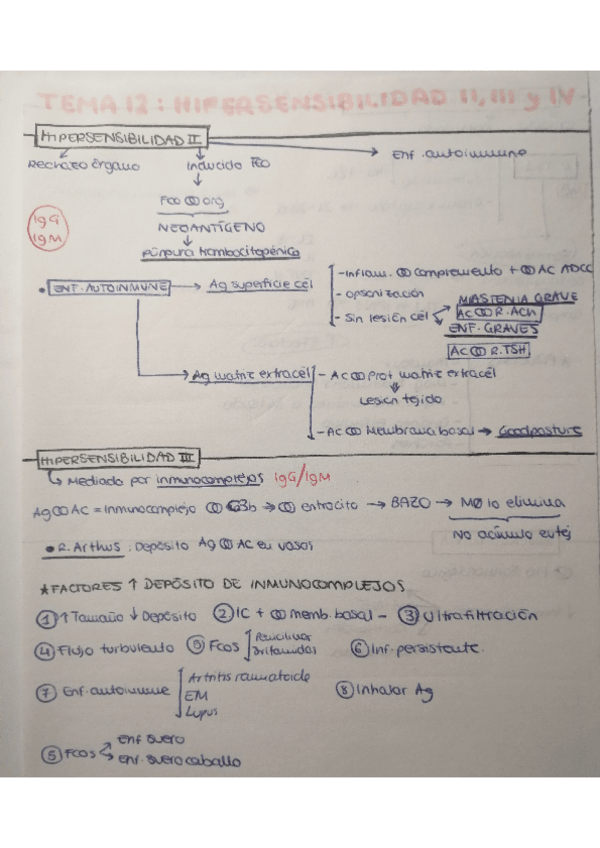 TEMA 12: HIPERSENSIBILIDAD II, III y IV
HIPERSENSIBILIDAD II
Rechazo órgano
Inducido FCO
Enf. autoinmune
Fco org
NEOANTÍGENO
Púrpura trombocitopénica
IgG
IgM
• ENF. AUTOINMUNE → Ag superficie cél
- Inflam. complemento + AC ADCC
- Opsonización
- Sin lesión cél
MIASTENIA GRAVE
AC R. ACh
ENF. GRAVES
AC R. TSH
Ag matriz extracél
- Ac Prot matriz extracél
Lesión tejido
- Ac Membrana basal → Goodpasture
HIPERSENSIBILIDAD III
Mediado por inmunocomplejos IgG/IgM
Ag Ac = Inmunocomplejo C3b → eritrocito → BAZO → MØ lo elimina
No acúmulo en tej
• R. Arthus: Depósito Ag AC en vasos
★ FACTORES ↑ DEPÓSITO DE INMUNOCOMPLEJOS
① ↑ Tamaño ↓ Depósito ② IC + memb. basal - ③ Ultrafiltración
④ Flujo turbulento ⑤ Fcos
Penicilinas
⑥ Inf. persistente.
⑦ Enf. autoinmune
Artritis reumatoide
EM
Lupus
⑧ Inhalar Ag
⑤ Fcos
Enf suero
Enf. suero caballo